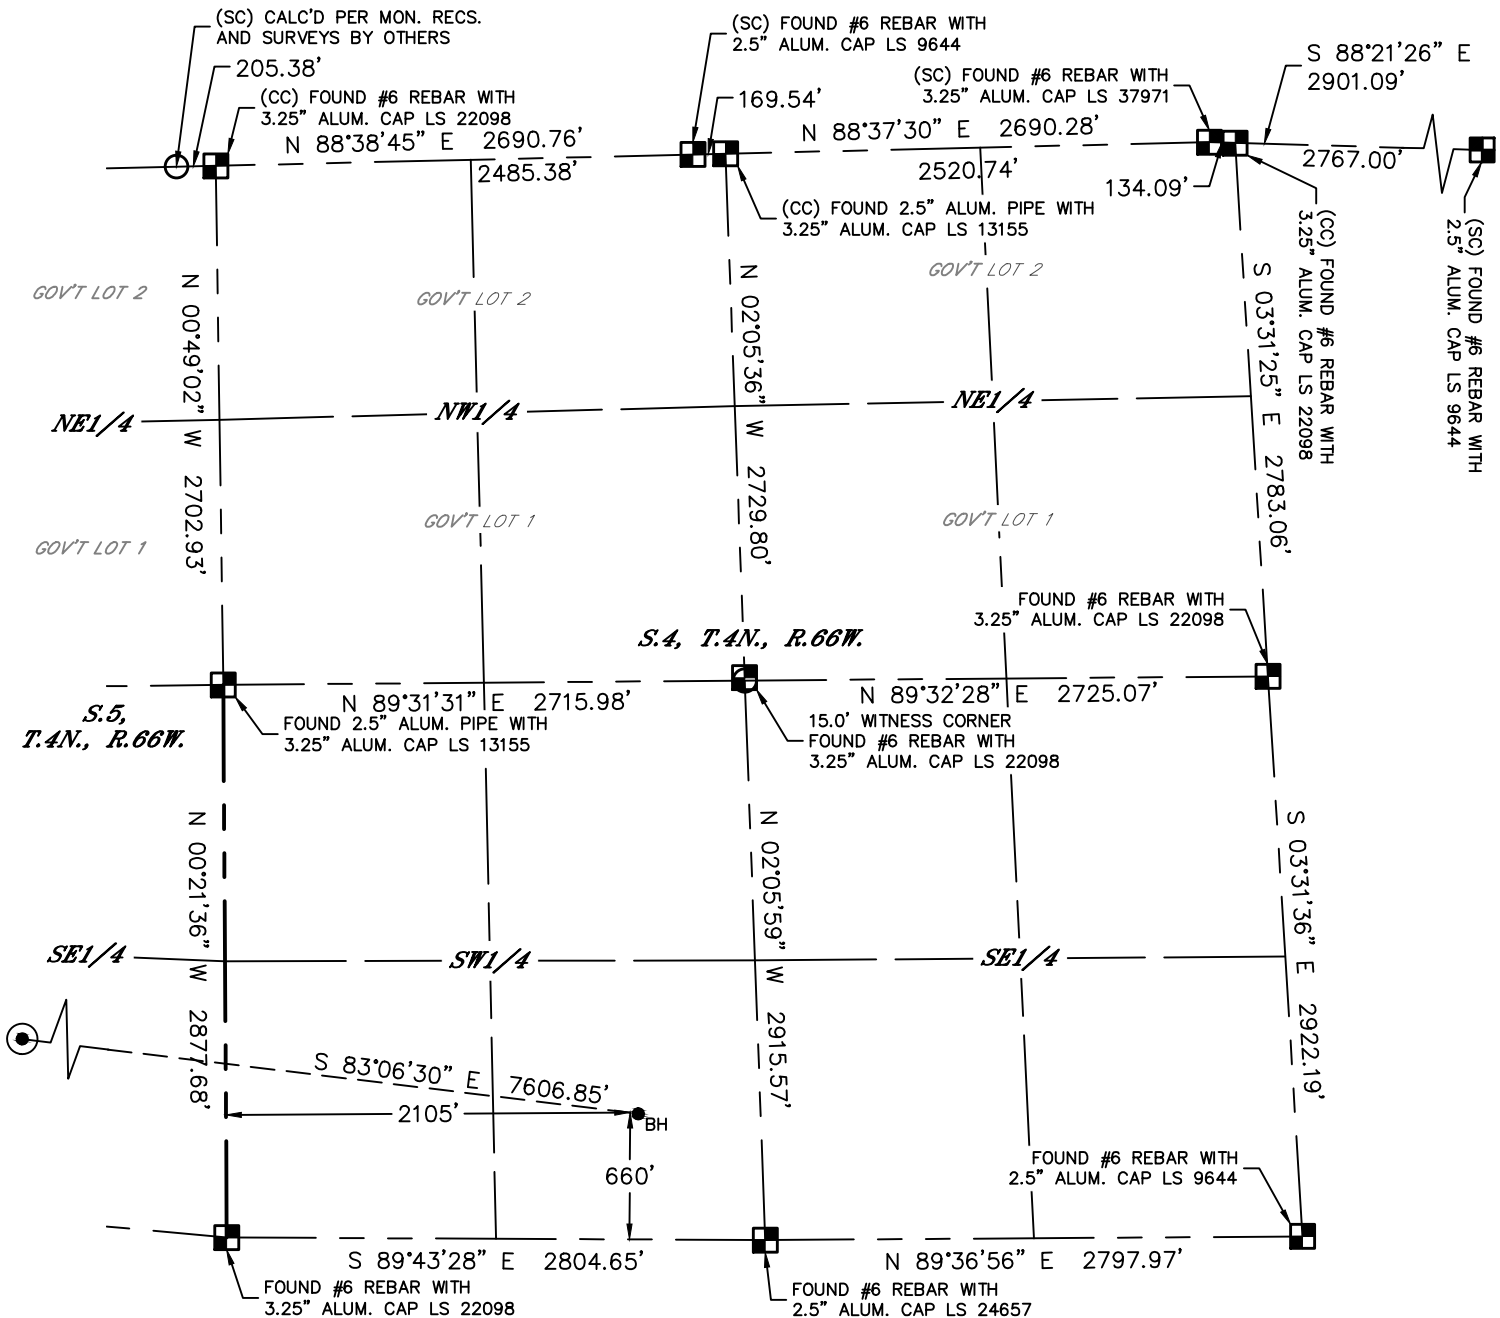 (SC) CALC'D PER MON. RECS.
AND SURVEYS BY OTHERS
205.38'
(CC) FOUND #6 REBAR WITH
3.25" ALUM. CAP LS 22098
N 88°38'45" E 2690.76'
2485.38'
(SC) FOUND #6 REBAR WITH
2.5" ALUM. CAP LS 9644
169.54'
(SC) FOUND #6 REBAR WITH
3.25" ALUM. CAP LS 37971
N 88°37'30" E 2690.28'
2520.74'
(CC) FOUND 2.5" ALUM. PIPE WITH
3.25" ALUM. CAP LS 13155
134.09'
S 88°21'26" E
2901.09'
2767.00'
(CC) FOUND #6 REBAR WITH
3.25" ALUM. CAP LS 22098
(SC) FOUND #6 REBAR WITH
2.5" ALUM. CAP LS 9644
GOV'T LOT 2
N 00°49'02" W 2702.93'
GOV'T LOT 2
N 02°05'36" W 2729.80'
GOV'T LOT 2
S 03°31'25" E 2783.06'
NE1/4
NW1/4
NE1/4
GOV'T LOT 1
GOV'T LOT 1
GOV'T LOT 1
FOUND #6 REBAR WITH
3.25" ALUM. CAP LS 22098
S.4, T.4N., R.66W.
N 89°31'31" E 2715.98'
N 89°32'28" E 2725.07'
S.5,
T.4N., R.66W.
FOUND 2.5" ALUM. PIPE WITH
3.25" ALUM. CAP LS 13155
15.0' WITNESS CORNER
FOUND #6 REBAR WITH
3.25" ALUM. CAP LS 22098
N 00°21'36" W 2877.68'
N 02°05'59" W 2915.57'
S 03°31'36" E 2922.19'
SE1/4
SW1/4
SE1/4
S 83°06'30" E 7606.85'
2105'
BH
660'
FOUND #6 REBAR WITH
2.5" ALUM. CAP LS 9644
S 89°43'28" E 2804.65'
N 89°36'56" E 2797.97'
FOUND #6 REBAR WITH
3.25" ALUM. CAP LS 22098
FOUND #6 REBAR WITH
2.5" ALUM. CAP LS 24657